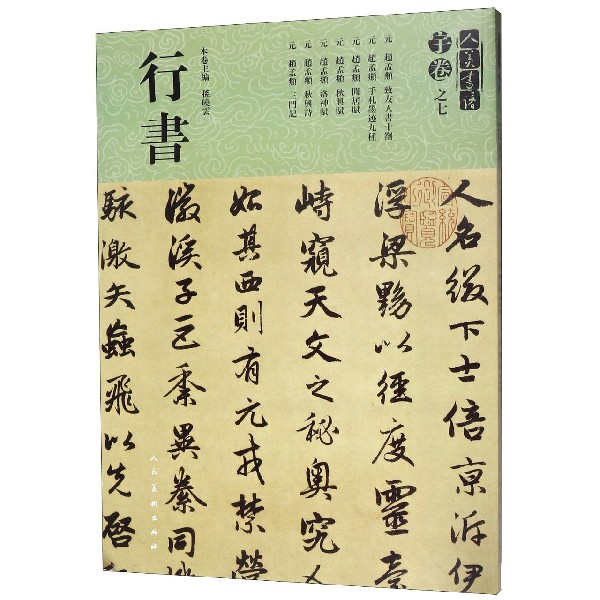 人美書譜
宇卷之七
元 趙孟頫 致友人書十劄
元 趙孟頫 手札墨迹九種
元 趙孟頫 閒居賦
元 趙孟頫 秋興賦
元 趙孟頫 洛神賦
元 趙孟頫 秋興詩
元 趙孟頫 三門記
本卷主編 孫曉雲
行書
人名綴下士倍京泝伊
浮梁黝以徑度靈臺
峙窺天文之秘奧究人
始其西則有元戎禁營
徽溪子巨黍異絭同
駭激矢蝱飛以先啓
人民美術出版社